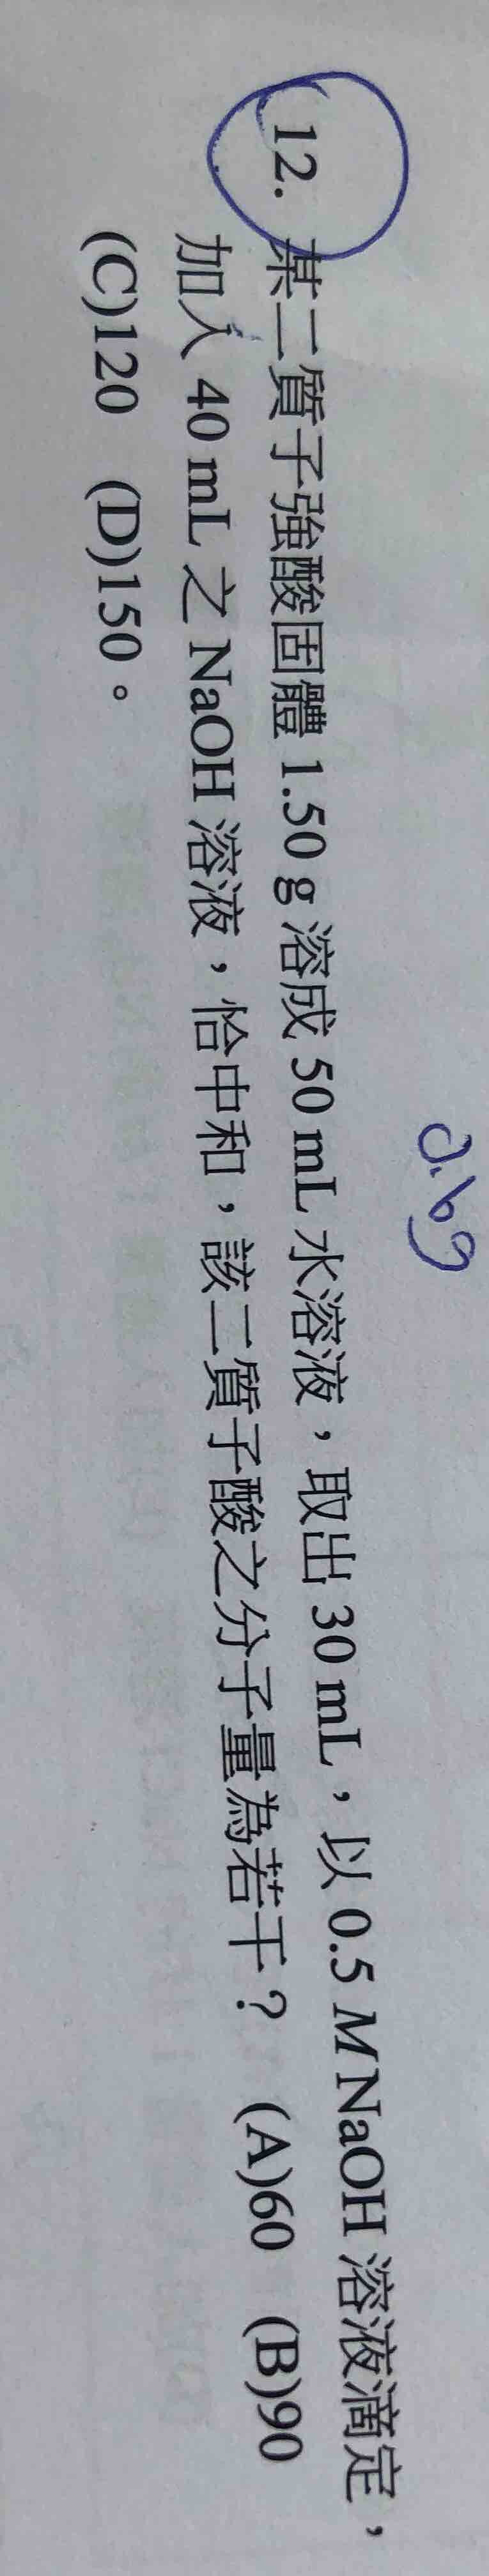 12. 某二質子強酸固體 1.50 g 溶成 50 mL 水溶液，取出 30 mL，以 0.5 M NaOH 溶液滴定，
加入 40 mL 之 NaOH 溶液，恰中和，該二質子酸之分子量為若干？ (A)60 (B)90
(C)120 (D)150。